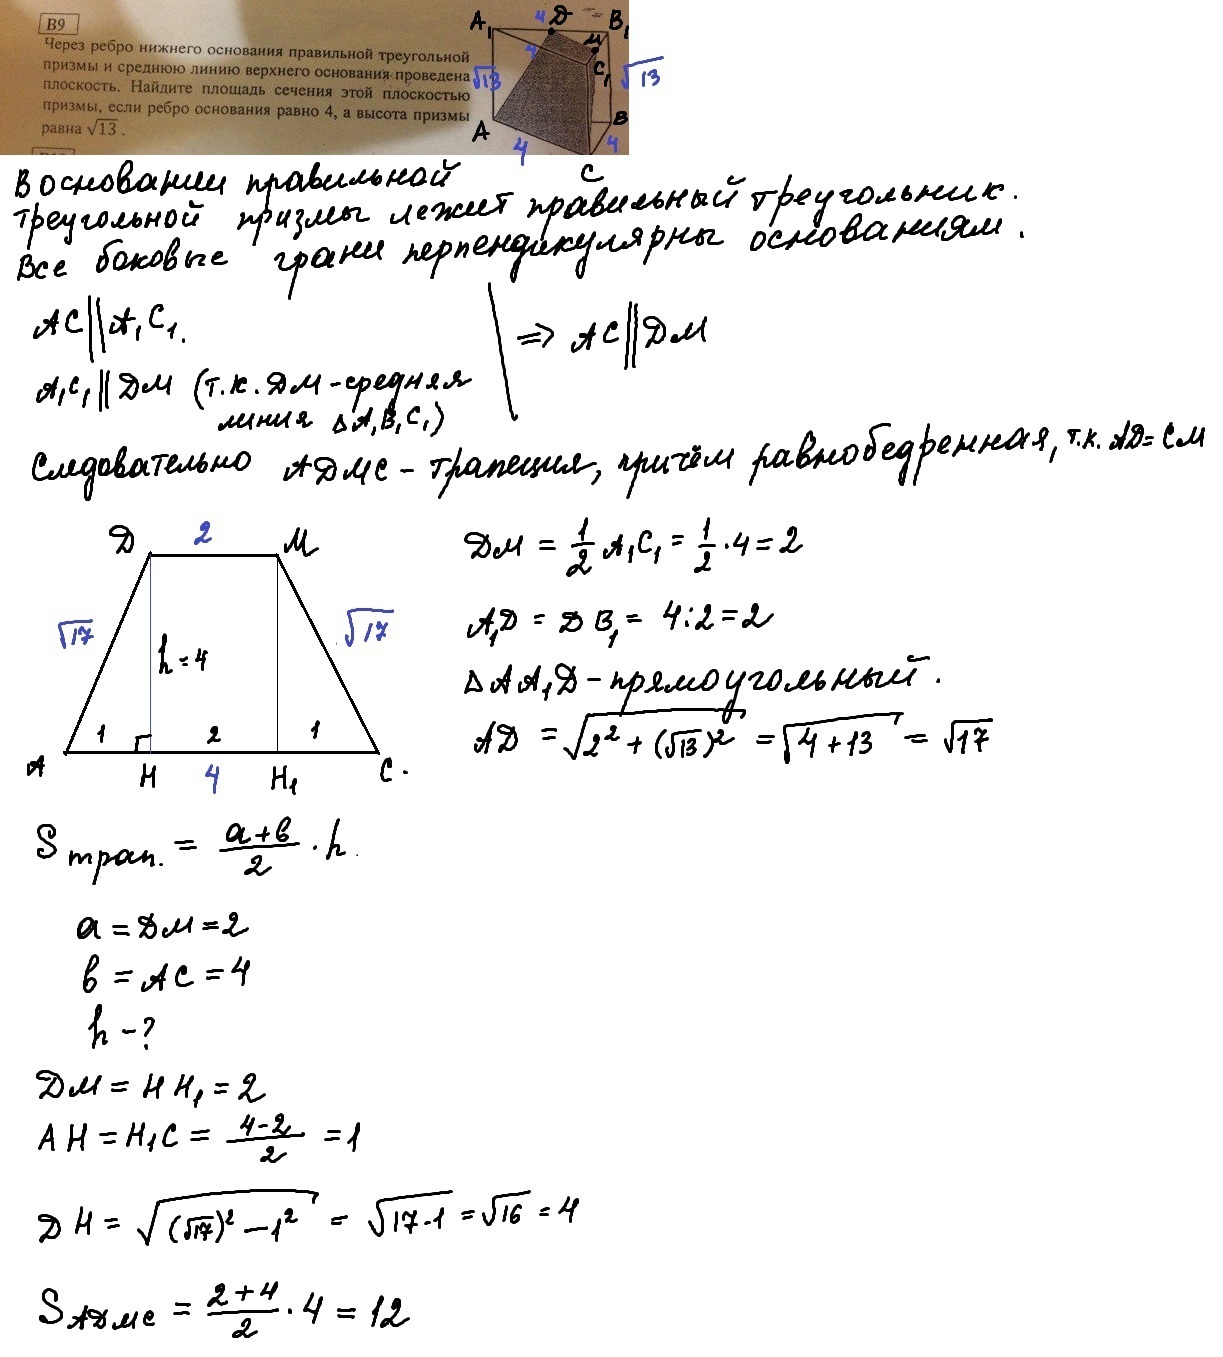 В9
Через ребро нижнего основания правильной треугольной
призмы и среднюю линию верхнего основания проведена
плоскость. Найдите площадь сечения этой плоскостью
призмы, если ребро основания равно 4, а высота призмы
равна √13 .
A₁ 4 Д B₁
4 М
√13 C₁ √13
A B
4 4
C
В основании правильной
треугольной призмы лежит правильный треугольник.
Все боковые грани перпендикулярны основаниям.
AC || A₁C₁.
=> AC || ДМ
A₁C₁ || ДМ (т.к. ДМ - средняя
линия △A₁B₁C₁)
Следовательно АДМС - трапеция, причём равнобедренная, т.к. АД = СМ
Д 2 М
√17 h = 4 √17
1 2 1
A H 4 H₁ C.
ДМ = 1/2 A₁C₁ = 1/2 · 4 = 2
A₁Д = ДB₁ = 4 : 2 = 2
△AA₁Д - прямоугольный.
АД = √(2² + (√13)²) = √(4 + 13) = √17
S трап. = (a + b)/2 · h.
a = ДМ = 2
b = AC = 4
h - ?
ДМ = HH₁ = 2
AH = H₁C = (4 - 2)/2 = 1
ДH = √((√17)² - 1²) = √(17 - 1) = √16 = 4
S АДМС = (2 + 4)/2 · 4 = 12